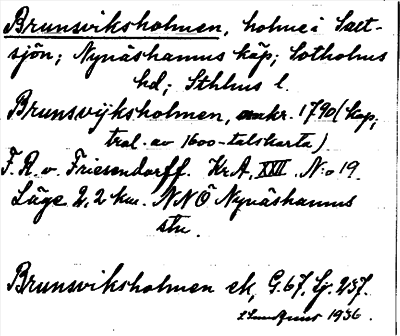 Brunsviksholmen, holme i Salt-
sjön; Nynäshamns köp; Sotholms
hd; Sthlms l.
Brunsvijksholmen, omkr. 1790 (kop.
tral. av 1600-talskarta).
F. R. v. Friesendorff. Kr.A. XXII, N:o 19
Läge 2,2 km. NNÖ Nynäshamns
stn.
Brunsviksholmen ek, G. 67, Lj. 237.
1936.